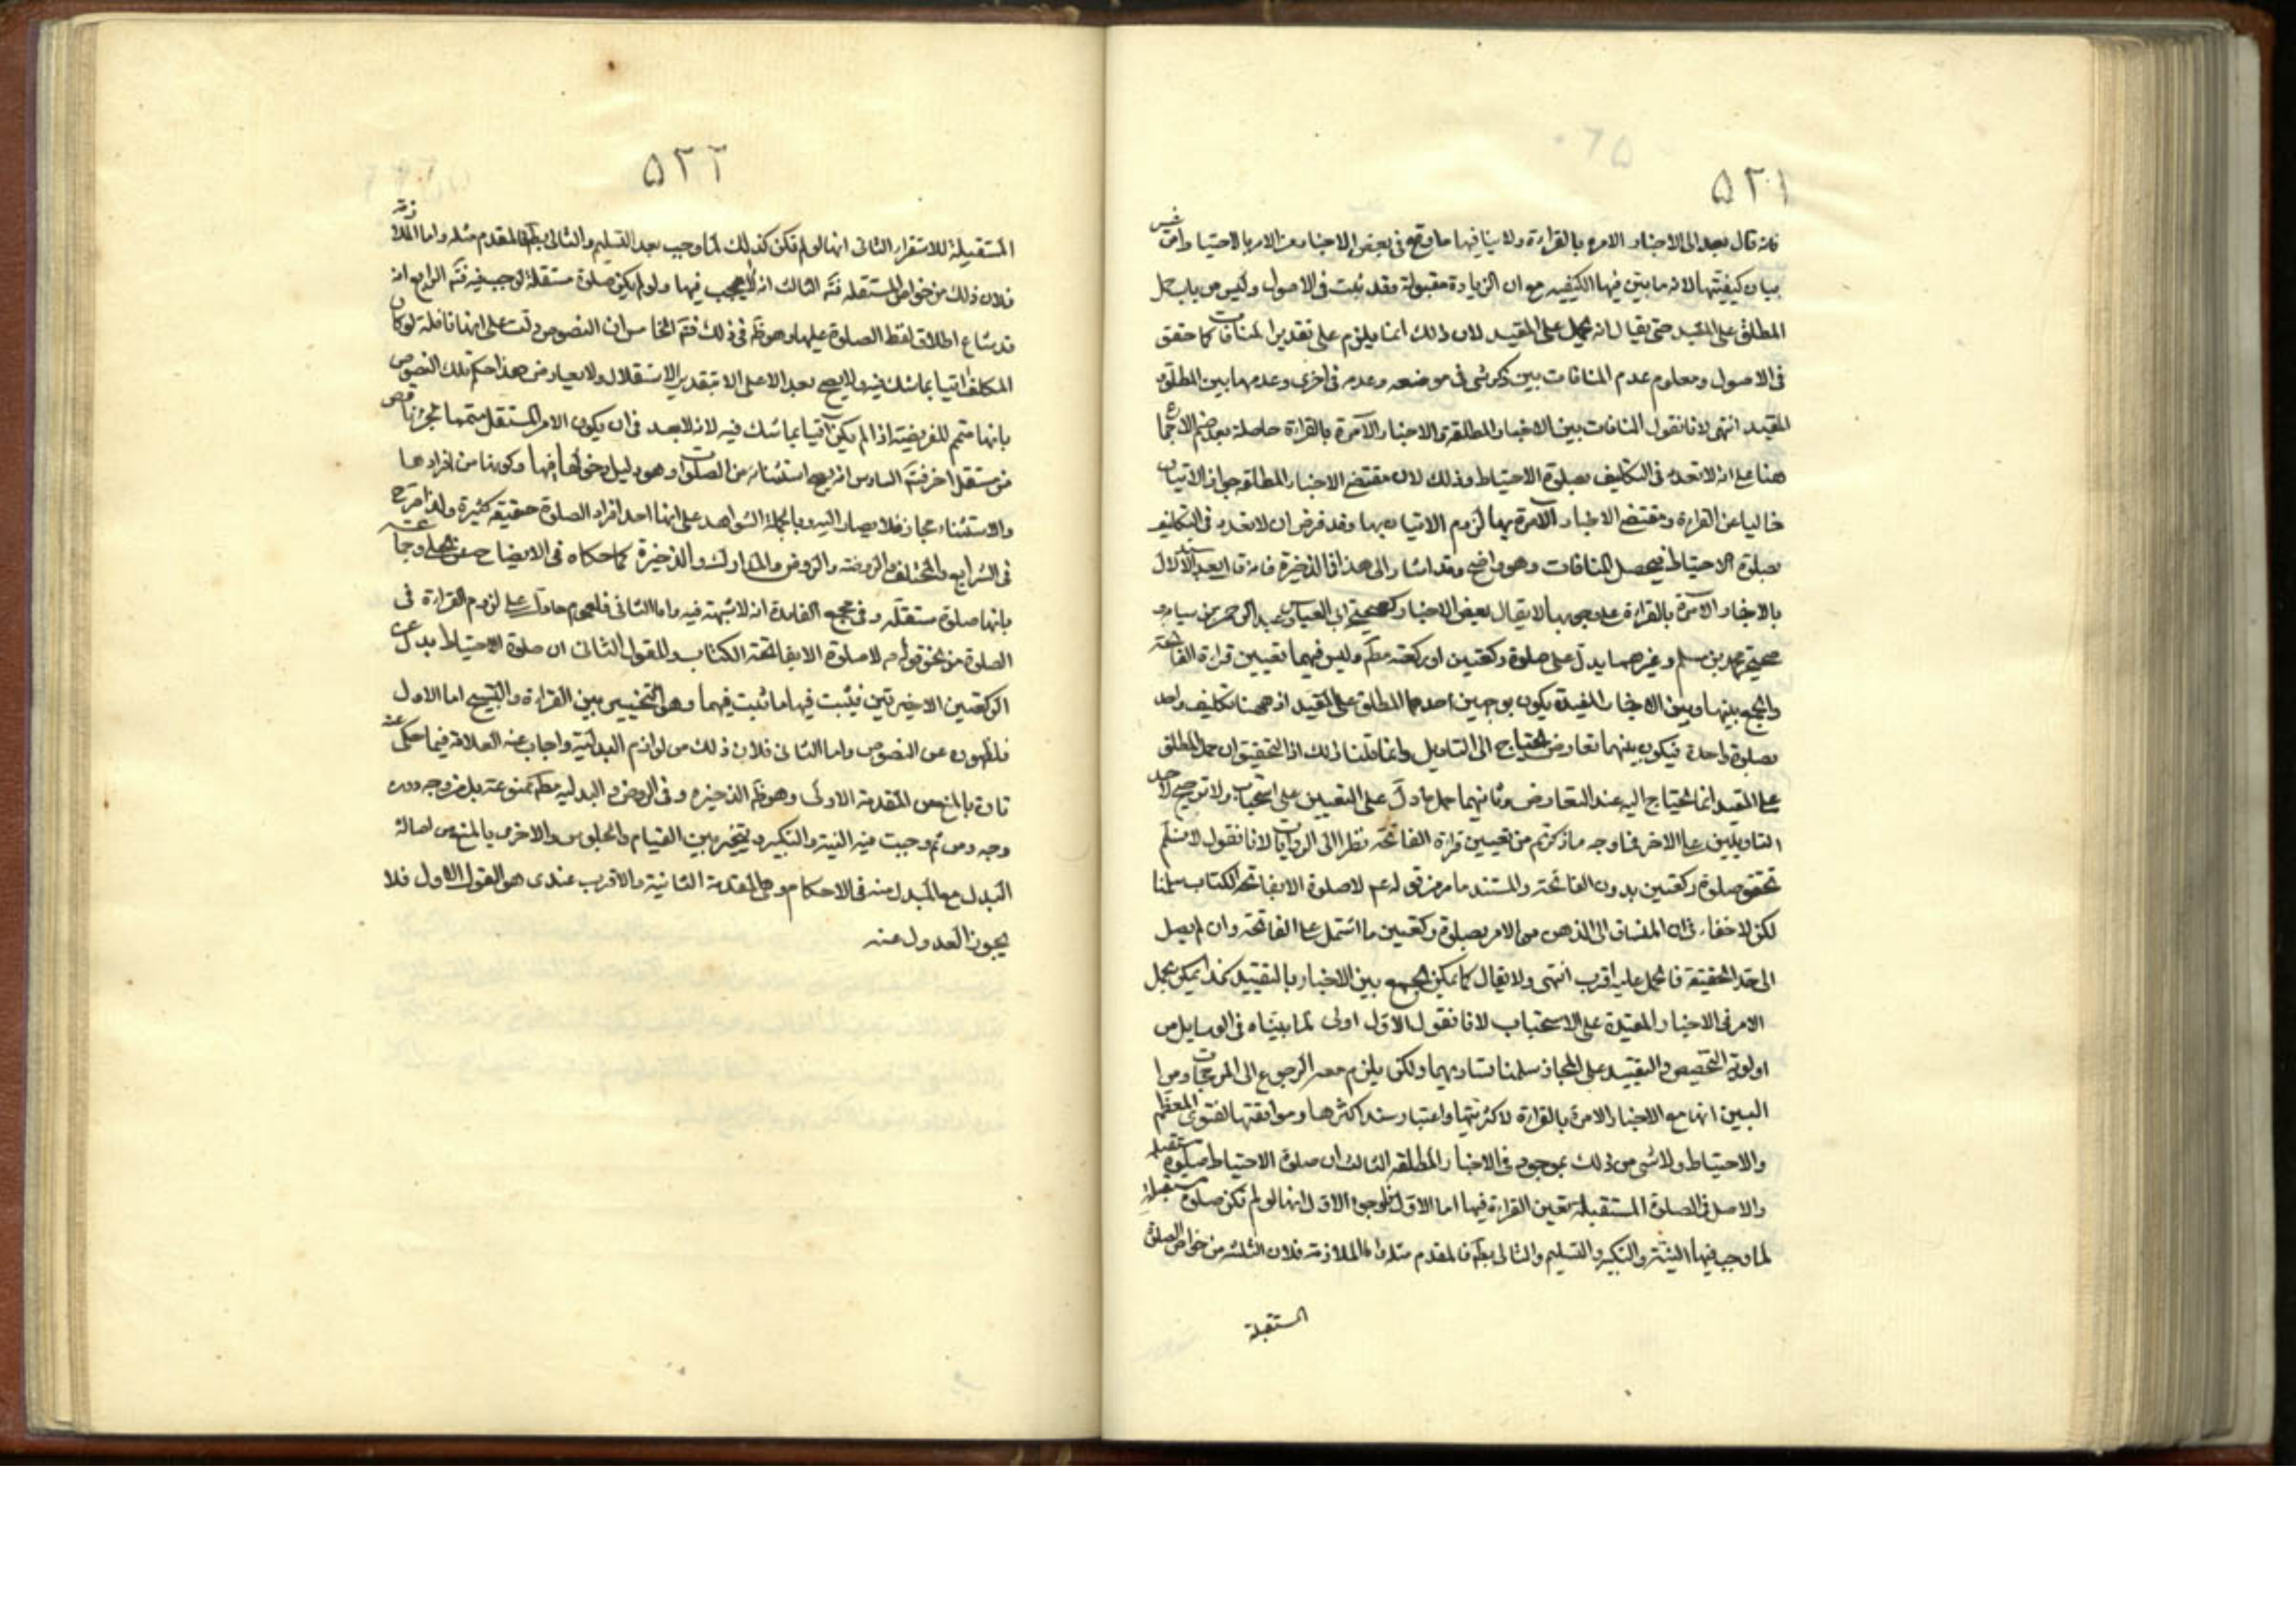 ۵۲۱
فانه قال بعد الى الاخبار الامرة بالقراءة ولا ينافيها ما وقع فى بعض الاخبار من الامر بالاحتياط من غير
بيان كيفيتها لانه ما بين فيها الكيفيه مع ان الزيادة مقبولة وقد ثبت فى الاصول وليس من باب حمل
المطلق على المقيد حتى يقال انه يحمل على المقيد لان ذلك انما يلزم على تقدير المنافات كما حقق
فى الاصول ومعلوم عدم المنافات بين ذكر شى فى موضعه وعدمه فى اخرى وعدمها بين المطلق
المقيد انتهى لانا نقول المنافات بين الاخبار المطلقة والاخبار الآمرة بالقراءة حاصلة بعد ضم الاجماع
هنا على انه لا تعدد فى التكليف بصلوة الاحتياط وذلك لان مقتضى الاخبار المطلقة جواز الاتيان
خاليا عن القراءة ومقتضى الاخبار الآمرة بها لزوم الاتيان بها وقد فرض ان لا تعدد فى التكليف
بصلوة الاحتياط فيحصل المنافات وهو واضح وقد اشار الى هذا فى الذخيرة فانه قال بعد الاستدلال
بالاخبار الآمرة بالقراءة على وجوبها لا يقال بعض الاخبار كصحيحة ابى العباس وعبد الرحمن بن سيابه و
صحيحة محمد بن مسلم وغيرهما يدل على صلوة ركعتين او ركعة مطم وليس فيهما تعيين قراءة الفاتحة
والجمع بينها وبين الاخبار المقيدة يكون بوجهين احدهما حمل المطلق على المقيد اذ ههنا تكليف واحد
بصلوة واحدة فيكون بينهما تعارض يحتاج الى التاويل وانما قلنا ذلك اذ التحقيق ان حمل المطلق
على المقيد انما يحتاج اليه عند التعارض وثانيهما حمل ما دل على التعيين على استحباب ولا ترجيح لاحد
التاويلين على الاخر فما وجه ما ذكرتم من تعيين قراءة الفاتحة نظرا الى الروايات لانا نقول لا نسلم
تحقق صلوة ركعتين بدون الفاتحة والمستند ما مر من قوله عم لا صلوة الا بفاتحة الكتاب سلمنا
لكن لا خفاء فى ان المنساق الى الذهن من الامر بصلوة ركعتين ما اشتمل على الفاتحة وان لم يصل
الى حد الحقيقة فالحمل عليه اقرب انتهى ولا يقال كما يمكن الجمع بين الاخبار بالتقييد كذا يمكن بحمل
الامر فى الاخبار المقيدة على الاستحباب لانا نقول الاول اولى لما بيناه فى الوسايل من
اولوية التخصيص والتقييد على المجاز سلمنا تساويهما ولكن يلزم معه الرجوع الى المرجحات ومن
البين انها مع الاخبار الامرة بالقراءة لاكثريتها واعتبار سند اكثرها وموافقتها لفتوى المعظم
والاحتياط ولا شى من ذلك بموجود فى الاخبار المطلقه الثالث ان صلوة الاحتياط صلوة مستقلة
والاصل فى الصلوة المستقبلة تعين القراءة فيها اما الاول فلوجوه الاول انها لو لم تكن صلوة مستقبلة
لما وجب فيها النية والتكبير والتسليم والتالى بطم فالمقدم مثله واما الملازمة فلان الثلثه من خواص الصلوة
المستقبلة
۵۲۲
المستقبلة للاستقرار الثانى انها لو لم تكن كذلك لما وجب بعد التسليم والتالى بطم فالمقدم مثله واما الملازمة
فلان ذلك من خواص المستقله فتم الثالث انه لا يجب فيها ولو لم يكن صلوة مستقلة لوجب فيه فتم الرابع انه
قد شاع اطلاق لفظ الصلوة عليها وهو ظم فى ذلك فتم الخامس ان النصوص دلت على انها نافلة لو كان
المكلف اتيا بما شك فيه ولا يصح بعد الا على الا بتقدير الاستقلال ولا يعارض هذا حكم تلك النصوص
بانها متمم للفريضة اذا لم يكن آتيا بما شك فيه لانه لا بعد فى ان يكون الامر المستقل متمما لجزء ناقص
من مستقل اخر فتم السادس انه يصح استثناؤه من الصلوات وهو دليل دخولها فيها وكونها من افرادها
والاستثناء مجاز فلا يصار اليه وبالجملة الشواهد على انها احد افراد الصلوة حقيقه كثيرة ولذا صرح
فى الشرايع والمختلف والروضه والروض والمدارك والذخيرة كما حكاه فى الايضاح عن بعض وجماعة
بانها صلوة مستقله وفى مجمع الفايدة انه لا شبهة فيه واما الثانى فلعموم ما دل على لزوم القراءة فى
الصلوة من نحو قوله عم لا صلوة الا بفاتحة الكتاب وللقول الثانى ان صلوة الاحتياط بدل عن
الركعتين الاخيرتين فيثبت فيها ما ثبت فيهما وهو التخيير بين القراءة والتسبيح اما الاول
فلظهوره عن النصوص واما الثانى فلان ذلك من لوازم البدلية واجاب عنه العلامة فيما حكى عنه
تارة بالمنع من المقدمة الاولى وهو ظم الذخيرة وفى الروض والبدليه مطم ممنوعة بل من وجه دون
وجه ومن ثم وجبت فيه النية والتكبير ويتخير بين القيام والجلوس والاخرى بالمنع من اصالة
البدل مع المبدل منه فى الاحكام وهى المقدمة الثانية والاقرب عندى هو القول الاول فلا
يجوز العدول عنه